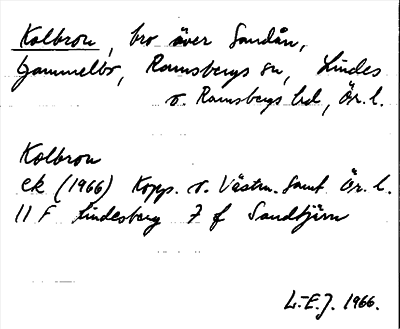 Kolbron, bro över Sandån,
Gammelbo, Ramsbergs sn, Lindes
o. Ramsbergs hd, Ör. l.
Kolbron
ek (1966) Kopp. o. Västm. samt Ör. l.
11 F Lindesberg 7 f Sandtjärn
L.-E.J. 1966.